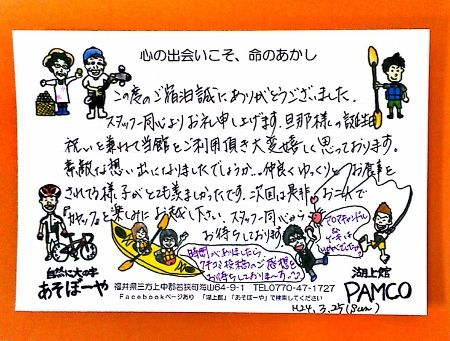 心の出会いこそ、命のあかし
この度のご宿泊誠にありがとうございました。
スタッフ一同心よりお礼申し上げます。旦那様の誕生日
祝いを兼ねて当館をご利用頂き大変嬉しく思っております。
素敵な想い出になりましたでしょうか。仲良くゆっくりとお食事を
されてる様子がとても羨ましかったです。次回は是非お二人で
『カヤック』を楽しみにお越し下さい。スタッフ一同心から
お待ちしております
アロマキャンドル
ケーキは
いかがでしたか
時間がありましたら
クチコミ投稿のご感想を
お待ちしております
自然に大の字
あそぼーや
福井県三方上中郡若狭町海山64-9-1 TEL0770-47-1727
Facebookページあり 「湖上館」「あそぼーや」で検索してください
湖上館
PAMCO
H24.3.25(Sun)